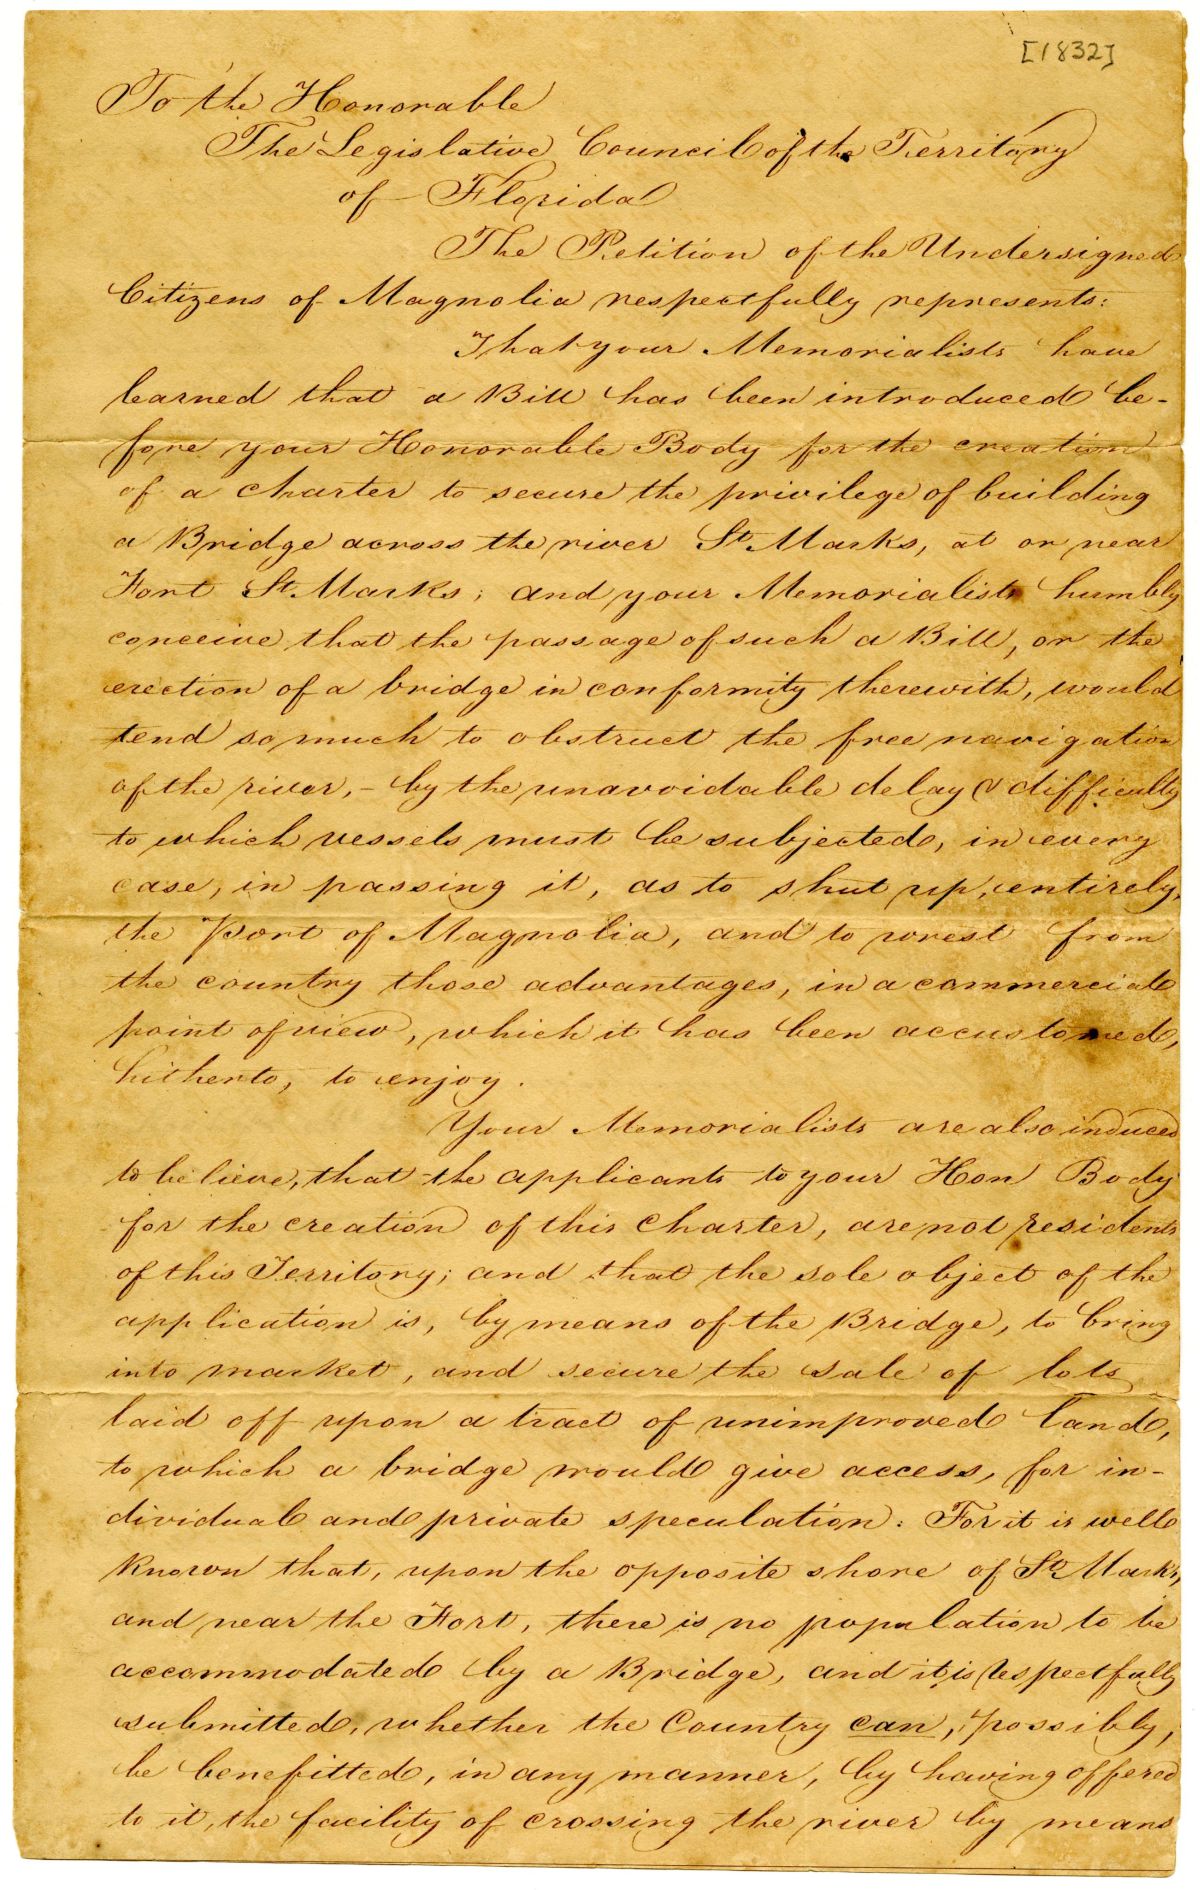 [1832]
To the Honorable
The Legislative Council of the Territory
of Florida
The Petition of the Undersigned
Citizens of Magnolia respectfully represents:
That your Memorialists have
learned that a Bill has been introduced be-
fore your Honorable Body for the creation
of a charter to secure the privilege of building
a Bridge across the river St. Marks, at or near
Fort St. Marks; and your Memorialists humbly
conceive that the passage of such a Bill, or the
erection of a bridge in conformity therewith, would
tend so much to obstruct the free navigation
of the river, - by the unavoidable delay & difficulty
to which vessels must be subjected, in every
case, in passing it, as to shut up, entirely,
the Port of Magnolia, and to wrest from
the country those advantages, in a commercial
point of view, which it has been accustomed,
hitherto, to enjoy.
Your Memorialists are also induced
to believe, that the applicants to your Hon Body
for the creation of this Charter, are not residents
of this Territory; and that the sole object of the
application is, by means of the Bridge, to bring
into market, and secure the sale of lots
laid off upon a tract of unimproved land,
to which a bridge would give access, for in-
dividual and private speculation: For it is well
known that, upon the opposite shore of St. Marks,
and near the Fort, there is no population to be
accommodated by a Bridge, and it is respectfully
submitted, whether the Country can, possibly,
be benefitted, in any manner, by having offered
to it, the facility of crossing the river by means